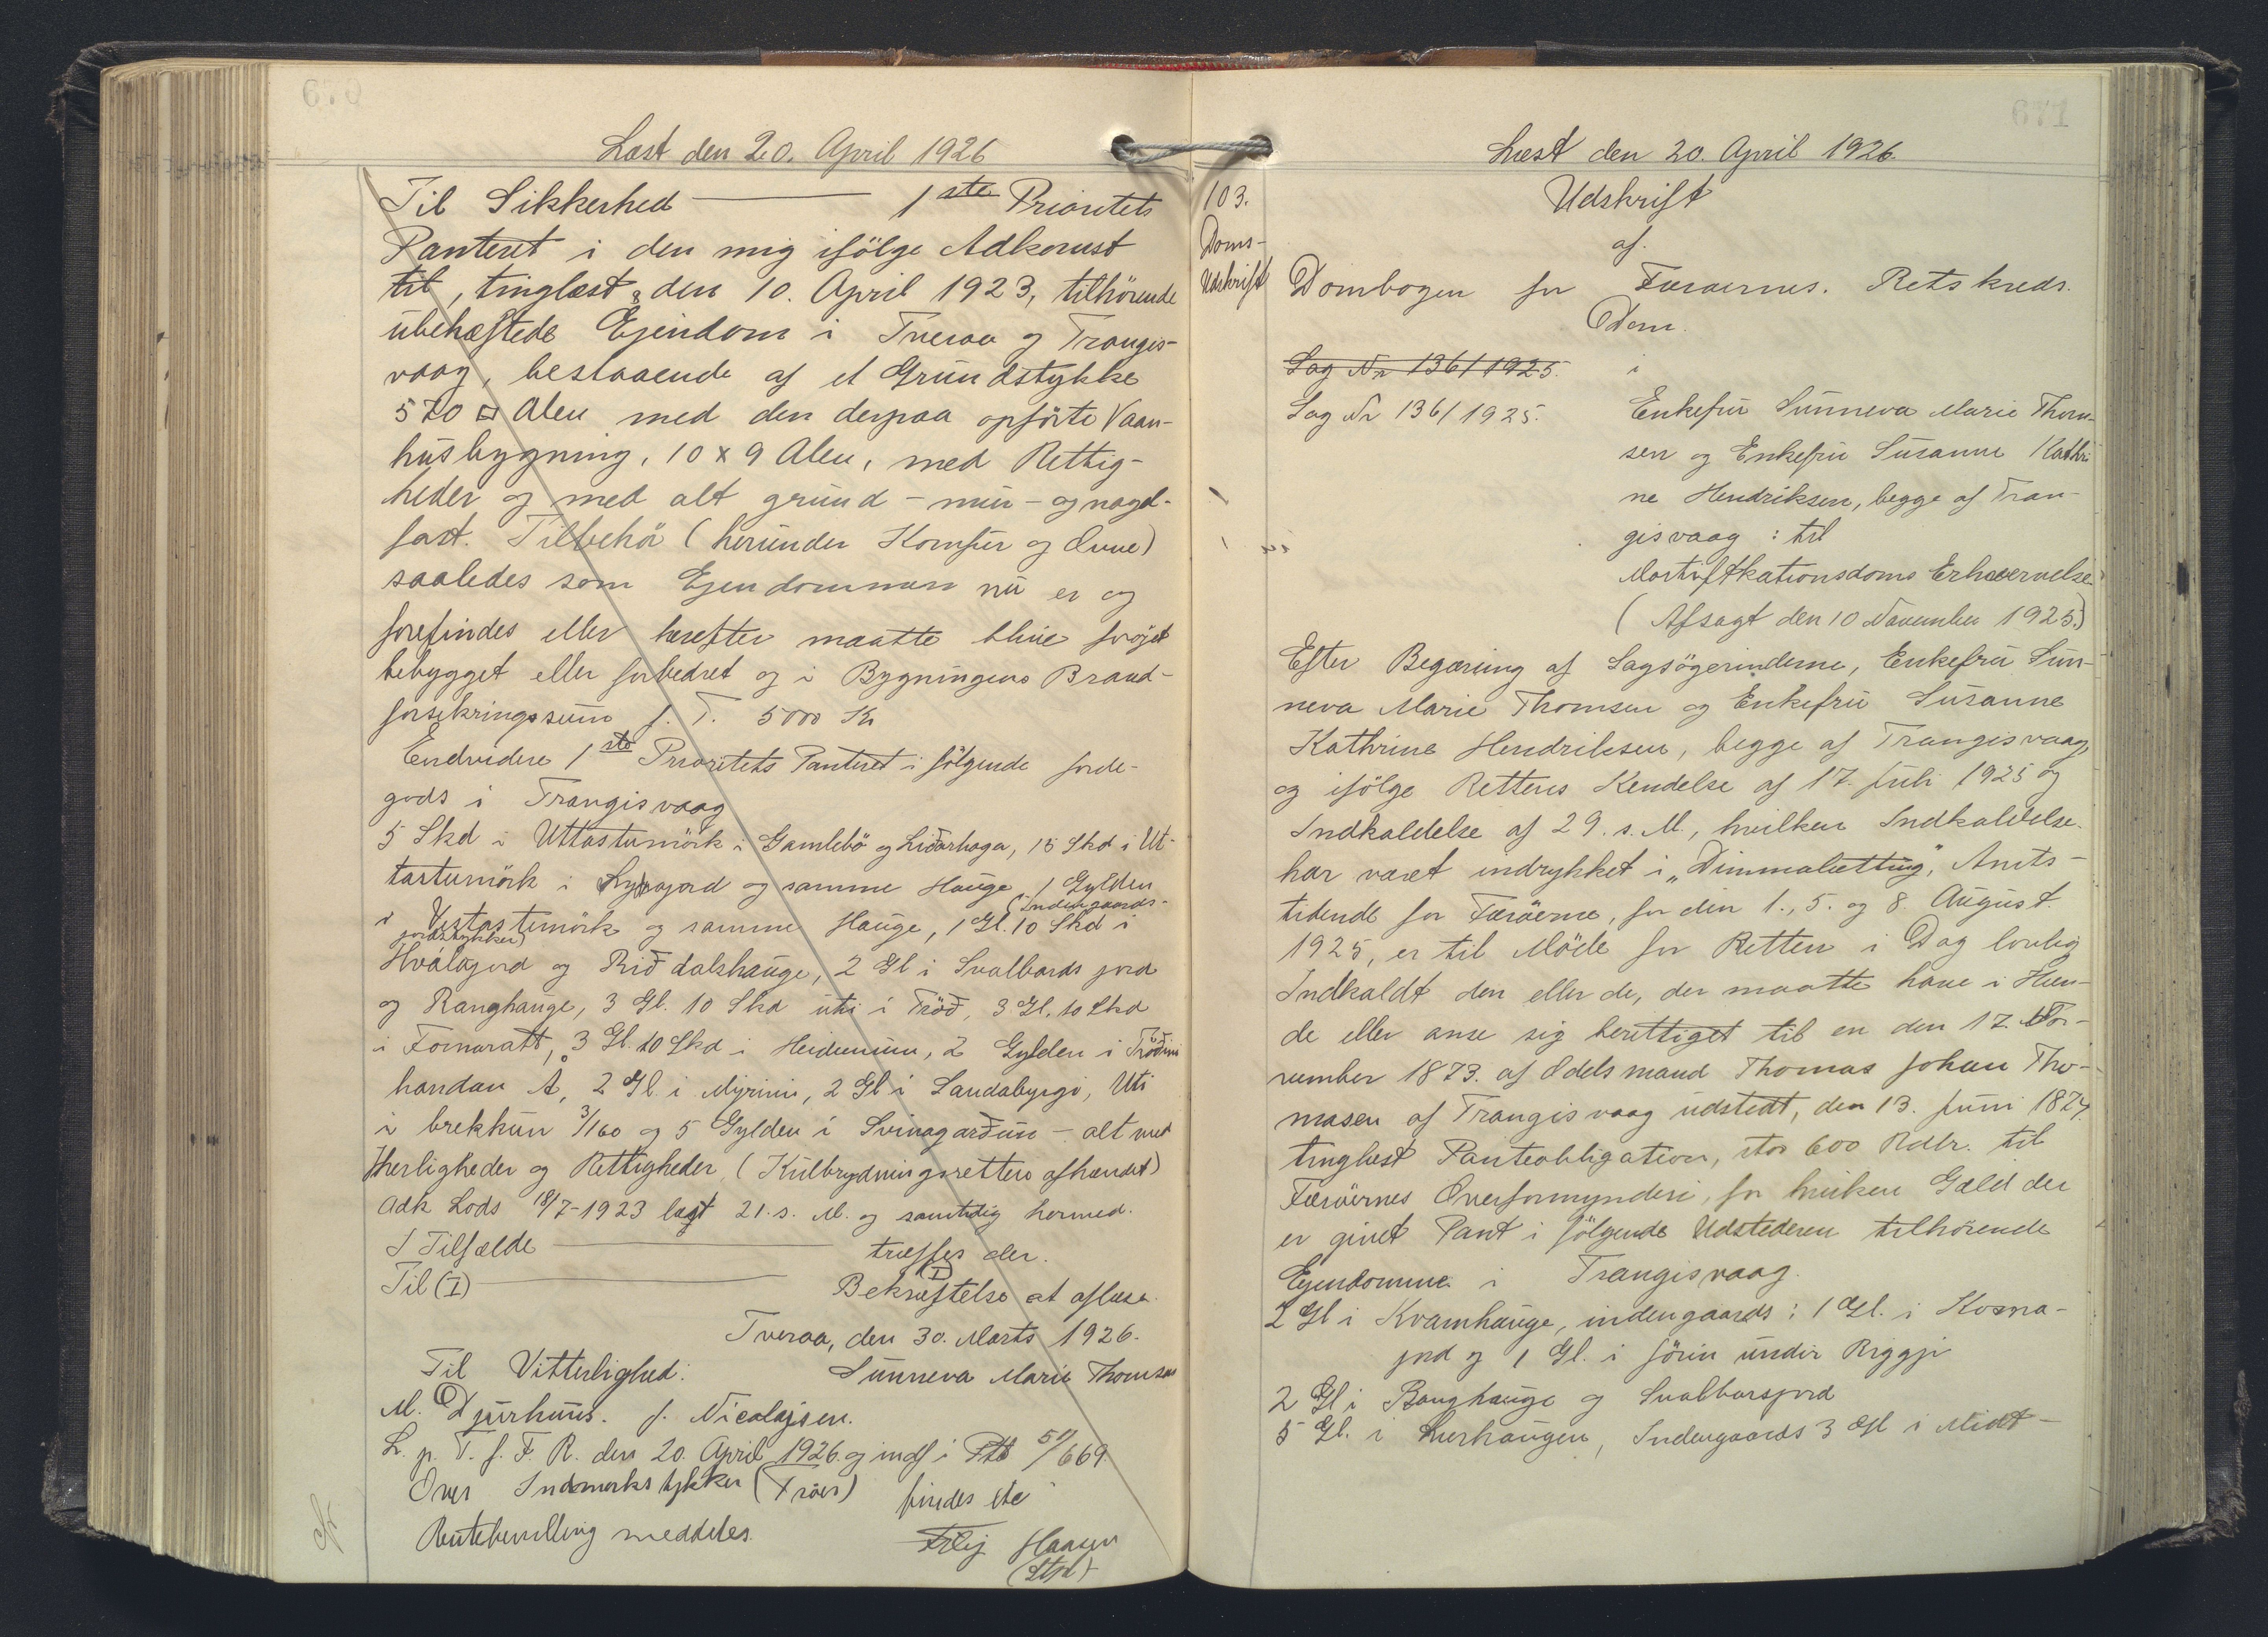 670
Læst den 20. April 1926
Til Sikkerhed — 1ste Prioritets
Panteret i den mig ifölge Adkomst
til, tinglæst den 10. April 1923, tilhörende
ubehæftede Ejendom i Tveraa og Trangis-
vaag, bestaaende af et Grundstykke
570 □ Alen med den derpaa opförte Vaan-
husbygning, 10 x 9 Alen, med Rettig-
heder og med alt grund- mur- og nagel-
fast. Tilbehör (herunder Komfur og Ovne)
saaledes som Ejendommen nu er og
forefindes eller herefter maatte blive föjet
bebygget eller forbedret og i Bygningens Brand-
forsikringssum f. T. 5000 Kr
Endvidere 1ste Prioritets Panteret i fölgende Jorde-
gods i Trangisvaag
5 Skd i Uttastumörk i Gamlebö og Liðarhaga, 15 Skd i Ut-
tastumörk i jord og samme Hauge, 1 Gylden
i Vestastumörk og samme Hauge, 1 Gl. 10 Skd i (Indengaards-
jordstykker)
Hválajord og Riðdalshauge, 2 Gl i Svalbards jord
og Ranghauge, 3 Gl. 10 Skd úti i Tröð, 3 Gl. 10 Skd
i Fornaratt, 3 Gl. 10 Skd i Heidunum, 2 Gylden i Tröðini
handan Á, 2 Gl. i Mýrini, 2 Gl i Sandabyrgi, Uti
i brekkun 3/160 og 5 Gylden í Svinagarðun — alt med
Herligheder og Rettigheder (Kulbrydningsretten afhændet)
Adk Lods 18/7-1923 læst 21. s. M. og samtidig hermed.
I Tilfælde — træffes der.
Til (I) — (I) Bekræftelse at aflæse.
Tveraa, den 30. Marts 1926.
Til Vitterlighed: Sunneva Marie Thomsen
M. Djurhuus. J. Nicolajsen.
L. p. T. f. F. R. den 20. April 1926 og indf i Ptb 57/669.
Over Indmarkstykker (Tröer) findes ite
Rentebevilling meddeles.
Hansen
(Stpl)
671
Læst den 20. April 1926.
103.
Doms-
Udskrift
Udskrift
af.
Dombogen for Færøernes. Retskreds.
Dom.
i
Sag Nr 136/1925.
Sag Nr 136/1925. Enkefru Sunneva Marie Thom-
sen og Enkefru Susanne Kathri
ne Hendriksen, begge af Tran-
gisvaag : til
Mortifikationsdoms Erhvervelse
(Afsagt den 10 November 1925.)
Efter Begæring af Sagsögerinderne, Enkefru Sun-
neva Marie Thomsen og Enkefru Susanne
Kathrine Hendriksen, begge af Trangisvaag
og ifölge Rettens Kendelse af 17. Juli 1925 og
Indkaldelse af 29. s. M., hvilken Indkaldelse
har været indrykket i „Dimmalætting", Amts-
tidende for Færöerne, for den 1., 5. og 8. August
1925, er til Möde for Retten i Dag lovlig
Indkaldt den eller de, der maatte have i Hæn-
de eller anse sig berettiget til en den 17. No-
vember 1873. af Odelsmand Thomas Johan Tho-
masen af Trangisvaag udstedt, den 13. Juni 1874.
tinglæst Panteobligation, stor 600 Rdlr. til
Færöernes Overformynderi, for hvilken Gæld der
er givet Pant i fölgende Udstederen tilhörende
Ejendomme i Trangisvaag.
2 Gl i Kvamhauge, indengaards: 1 Gl. i Kosna-
jord og 1 Gl. i förin undir Riggji
2 Gl i Ranghauge og Svalbarsjord
5 Gl. i Lurhaugen, Indengaards 3 Gl i Midt-